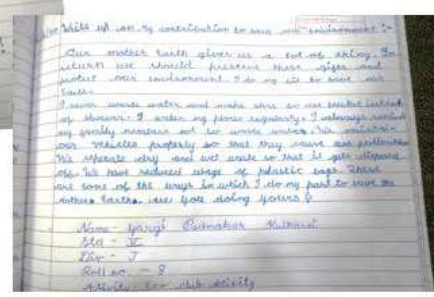 Write up on my contribution to save our environment :-
Our mother Earth gives us a lot of thing. In
return we should preserve these gifts and
protect our environment. I do my bit to save our
Earth.
I never waste water and make sure to use bucket instead
of shower. I water my plants regularly. I always remind
my family members not to waste water. We maintain
our vehicles properly so that they cause less pollution
We separate dry and wet waste so that it gets disposed
off. We have reduced usage of plastic bags. These
are some of the ways in which I do my part to save the
Mother Earth. Are you doing yours ?
Name - Gargi Kulkarni
Std - V
Div - J
Roll no. - 8
Activity - Eco club activity